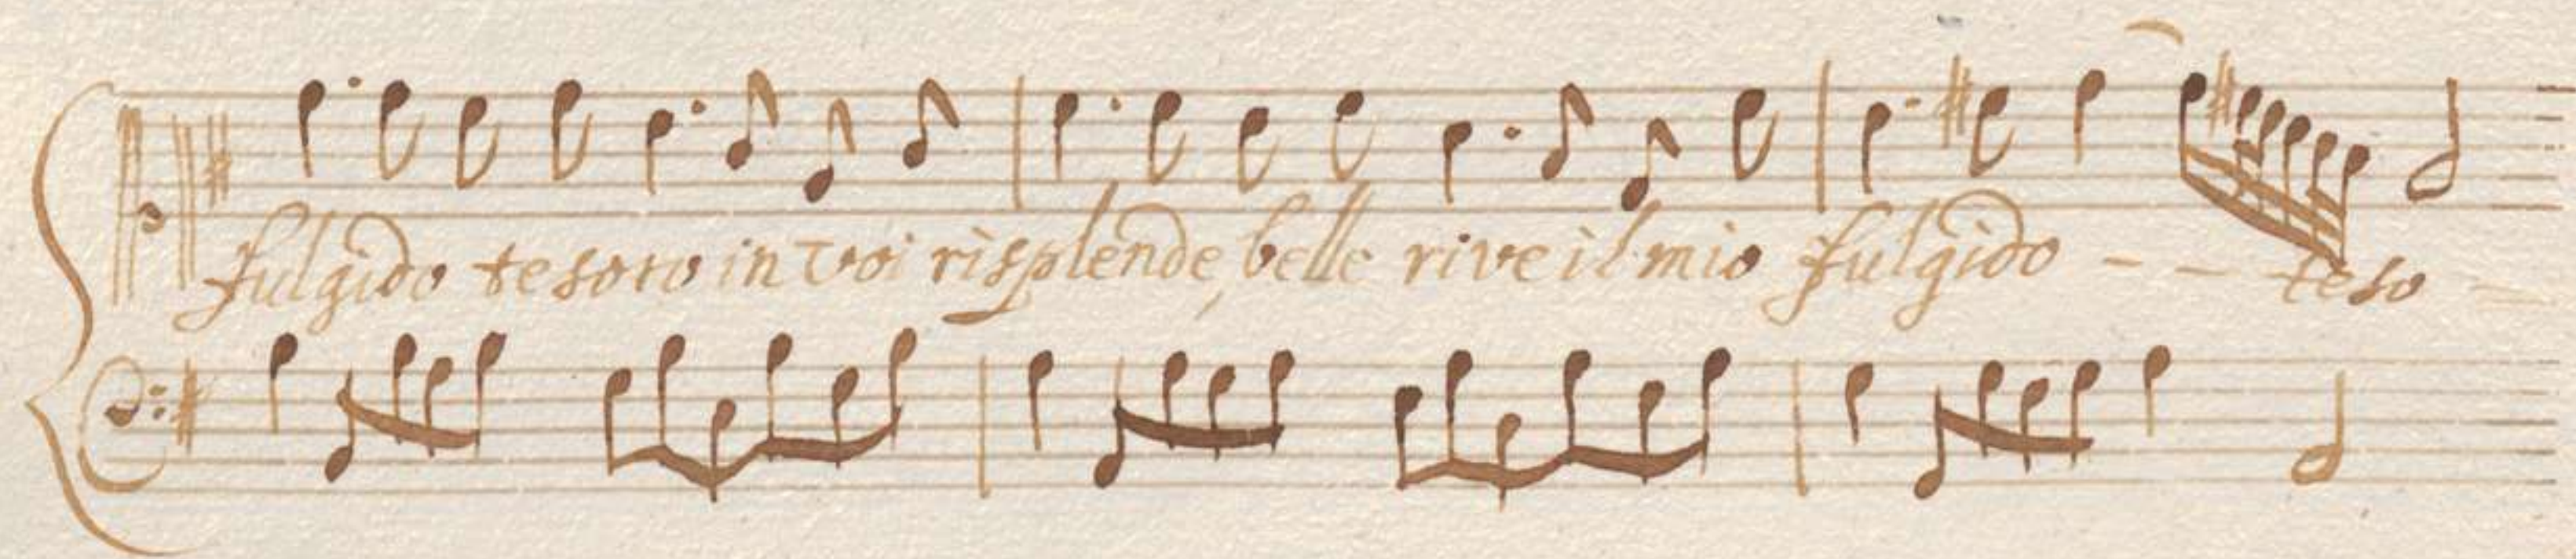 fulgido tesoro in voi risplende, belle rive il mio fulgido - - - teso